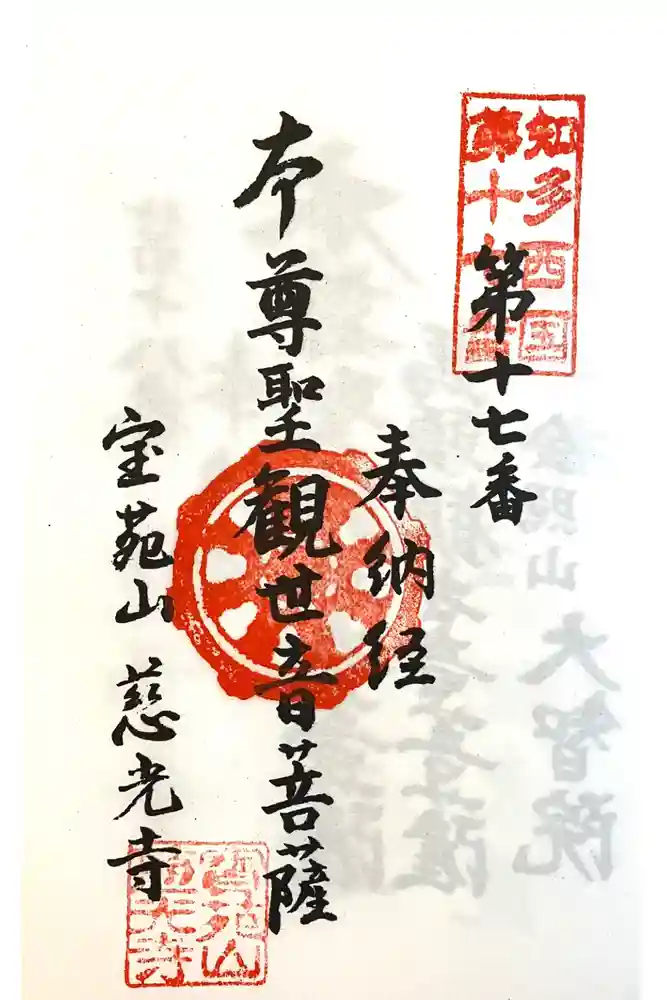 知多西国
第十七番
第十七番
奉納経
本尊聖観世音菩薩
宝苑山 慈光寺
大智院